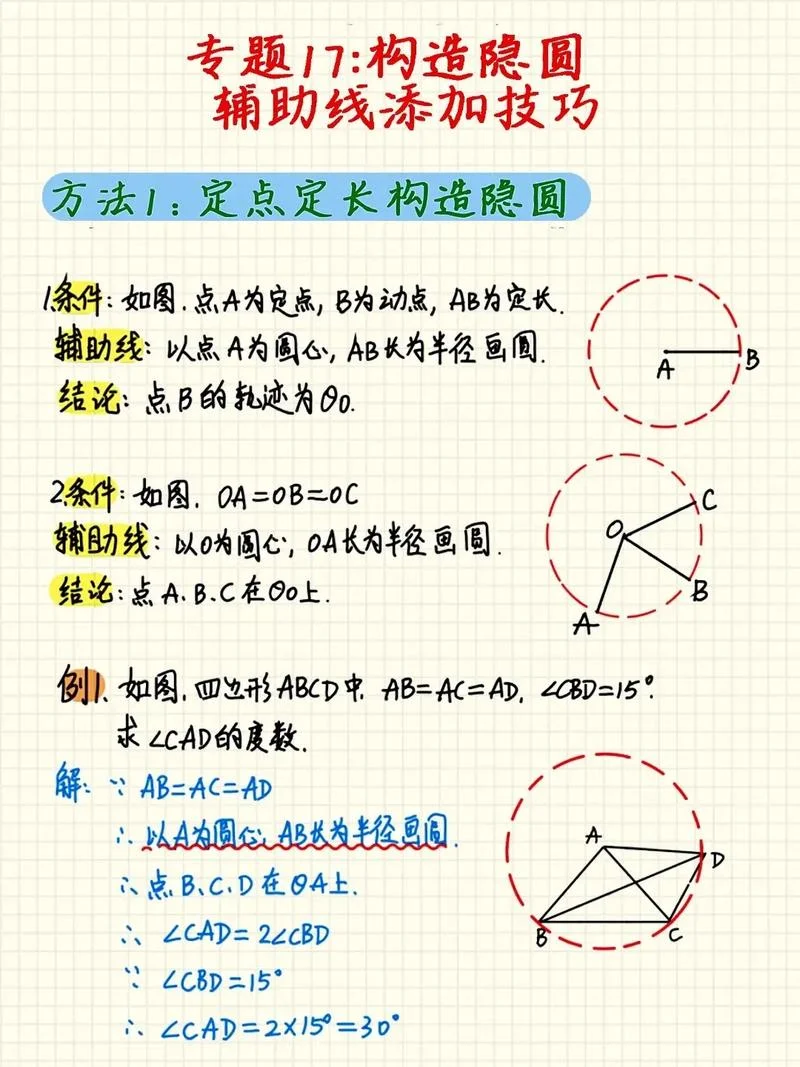 专题17:构造隐圆
辅助线添加技巧
方法1:定点定长构造隐圆
1.条件:如图.点A为定点,B为动点,AB为定长.
辅助线:以点A为圆心,AB长为半径画圆.
结论:点B的轨迹为⊙O.
A
B
2.条件:如图.OA=OB=OC
辅助线:以O为圆心,OA长为半径画圆.
结论:点A.B.C在⊙O上.
O
C
B
A
例1.如图.四边形ABCD中.AB=AC=AD.∠CBD=15°.
求∠CAD的度数.
解:∵AB=AC=AD
∴以A为圆心,AB长为半径画圆.
∴点B.C.D在⊙A上.
∴∠CAD=2∠CBD
∵∠CBD=15°
∴∠CAD=2×15°=30°
A
D
B
C